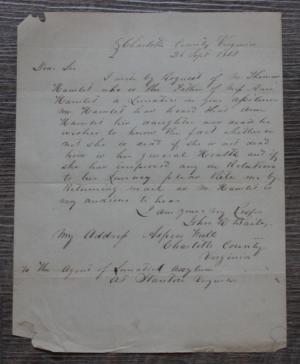 Charlotte County Virginia
2 Sept 1868
Dear Sir
I write by Request of Mr Thomas
Hamlet who is the Father of Miss Ann
Hamlet a Lunatic in your asylum
Mr Hamlet has heard that Ann
Hamlet his daughter was dead he
wishes to know the fact whether or
not she is dead if she is not dead
how is her general Health and if
she has improved any in Relation
to her Lunacy please Rite me by
Returning mail as Mr Hamlet is
very anxious to hear
I am yours very Resp
John
My Address Aspen Wall
Charlotte County
Virginia
To The Agent of Lunatic Asylum
At Stanton Virginia